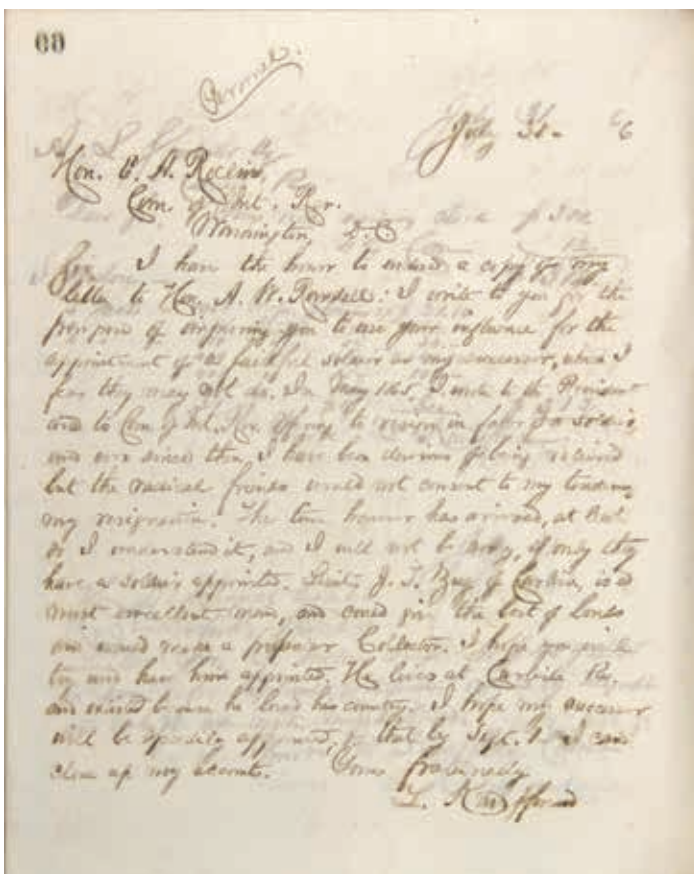 60
Personal.
July 31- 6
Hon. E. A. Rollins
Com. of Int. Rev.
Washington, D.C.
Sir I have the honor to enclose a copy of my
letter to Hon. A. W. Randall: I write to you for the
purpose of inquiring you to use your influence for the
appointment of a faithful soldier as my successor, which I
fear they may not do. In May 1865, I wrote to the President
and to Com. of Int. Rev. offering to resign in favor of a soldier
and ever since then, I have been desirous of being relieved
but the radical friends would not consent to my tendering
my resignation. The time however has arrived, at last
as I understand it, and I will not be sorry, if only they
have a soldier appointed. Lieut. J. T. Zug of Carlisle, is a
most excellent man, and could give the best of bonds
and would make a Collector. I hope you will
try and have him appointed. He lives at Carlisle Pa.
and because he loved his country. I hope my successor
will be speedily appointed, so that by Sept. 1 I can
close up my accounts. Yours fraternally
L. Kauffman